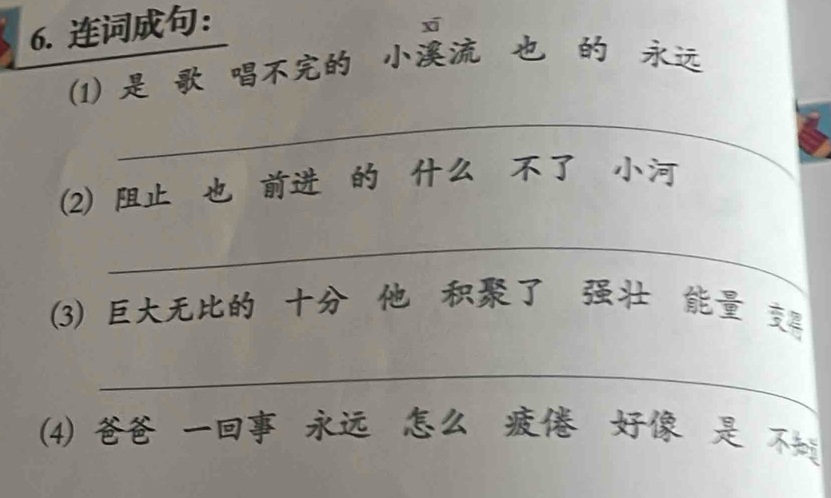 6. 连词成句：
xī
(1) 是 歌 唱不完的 小溪流 也 的 永远
(2) 阻止 也 前进 的 什么 不了 小河
(3) 巨大无比的 十分 他 积聚了 强壮 能量 变得
(4) 爸爸 一回事 永远 怎么 疲倦 好像 是 不知道